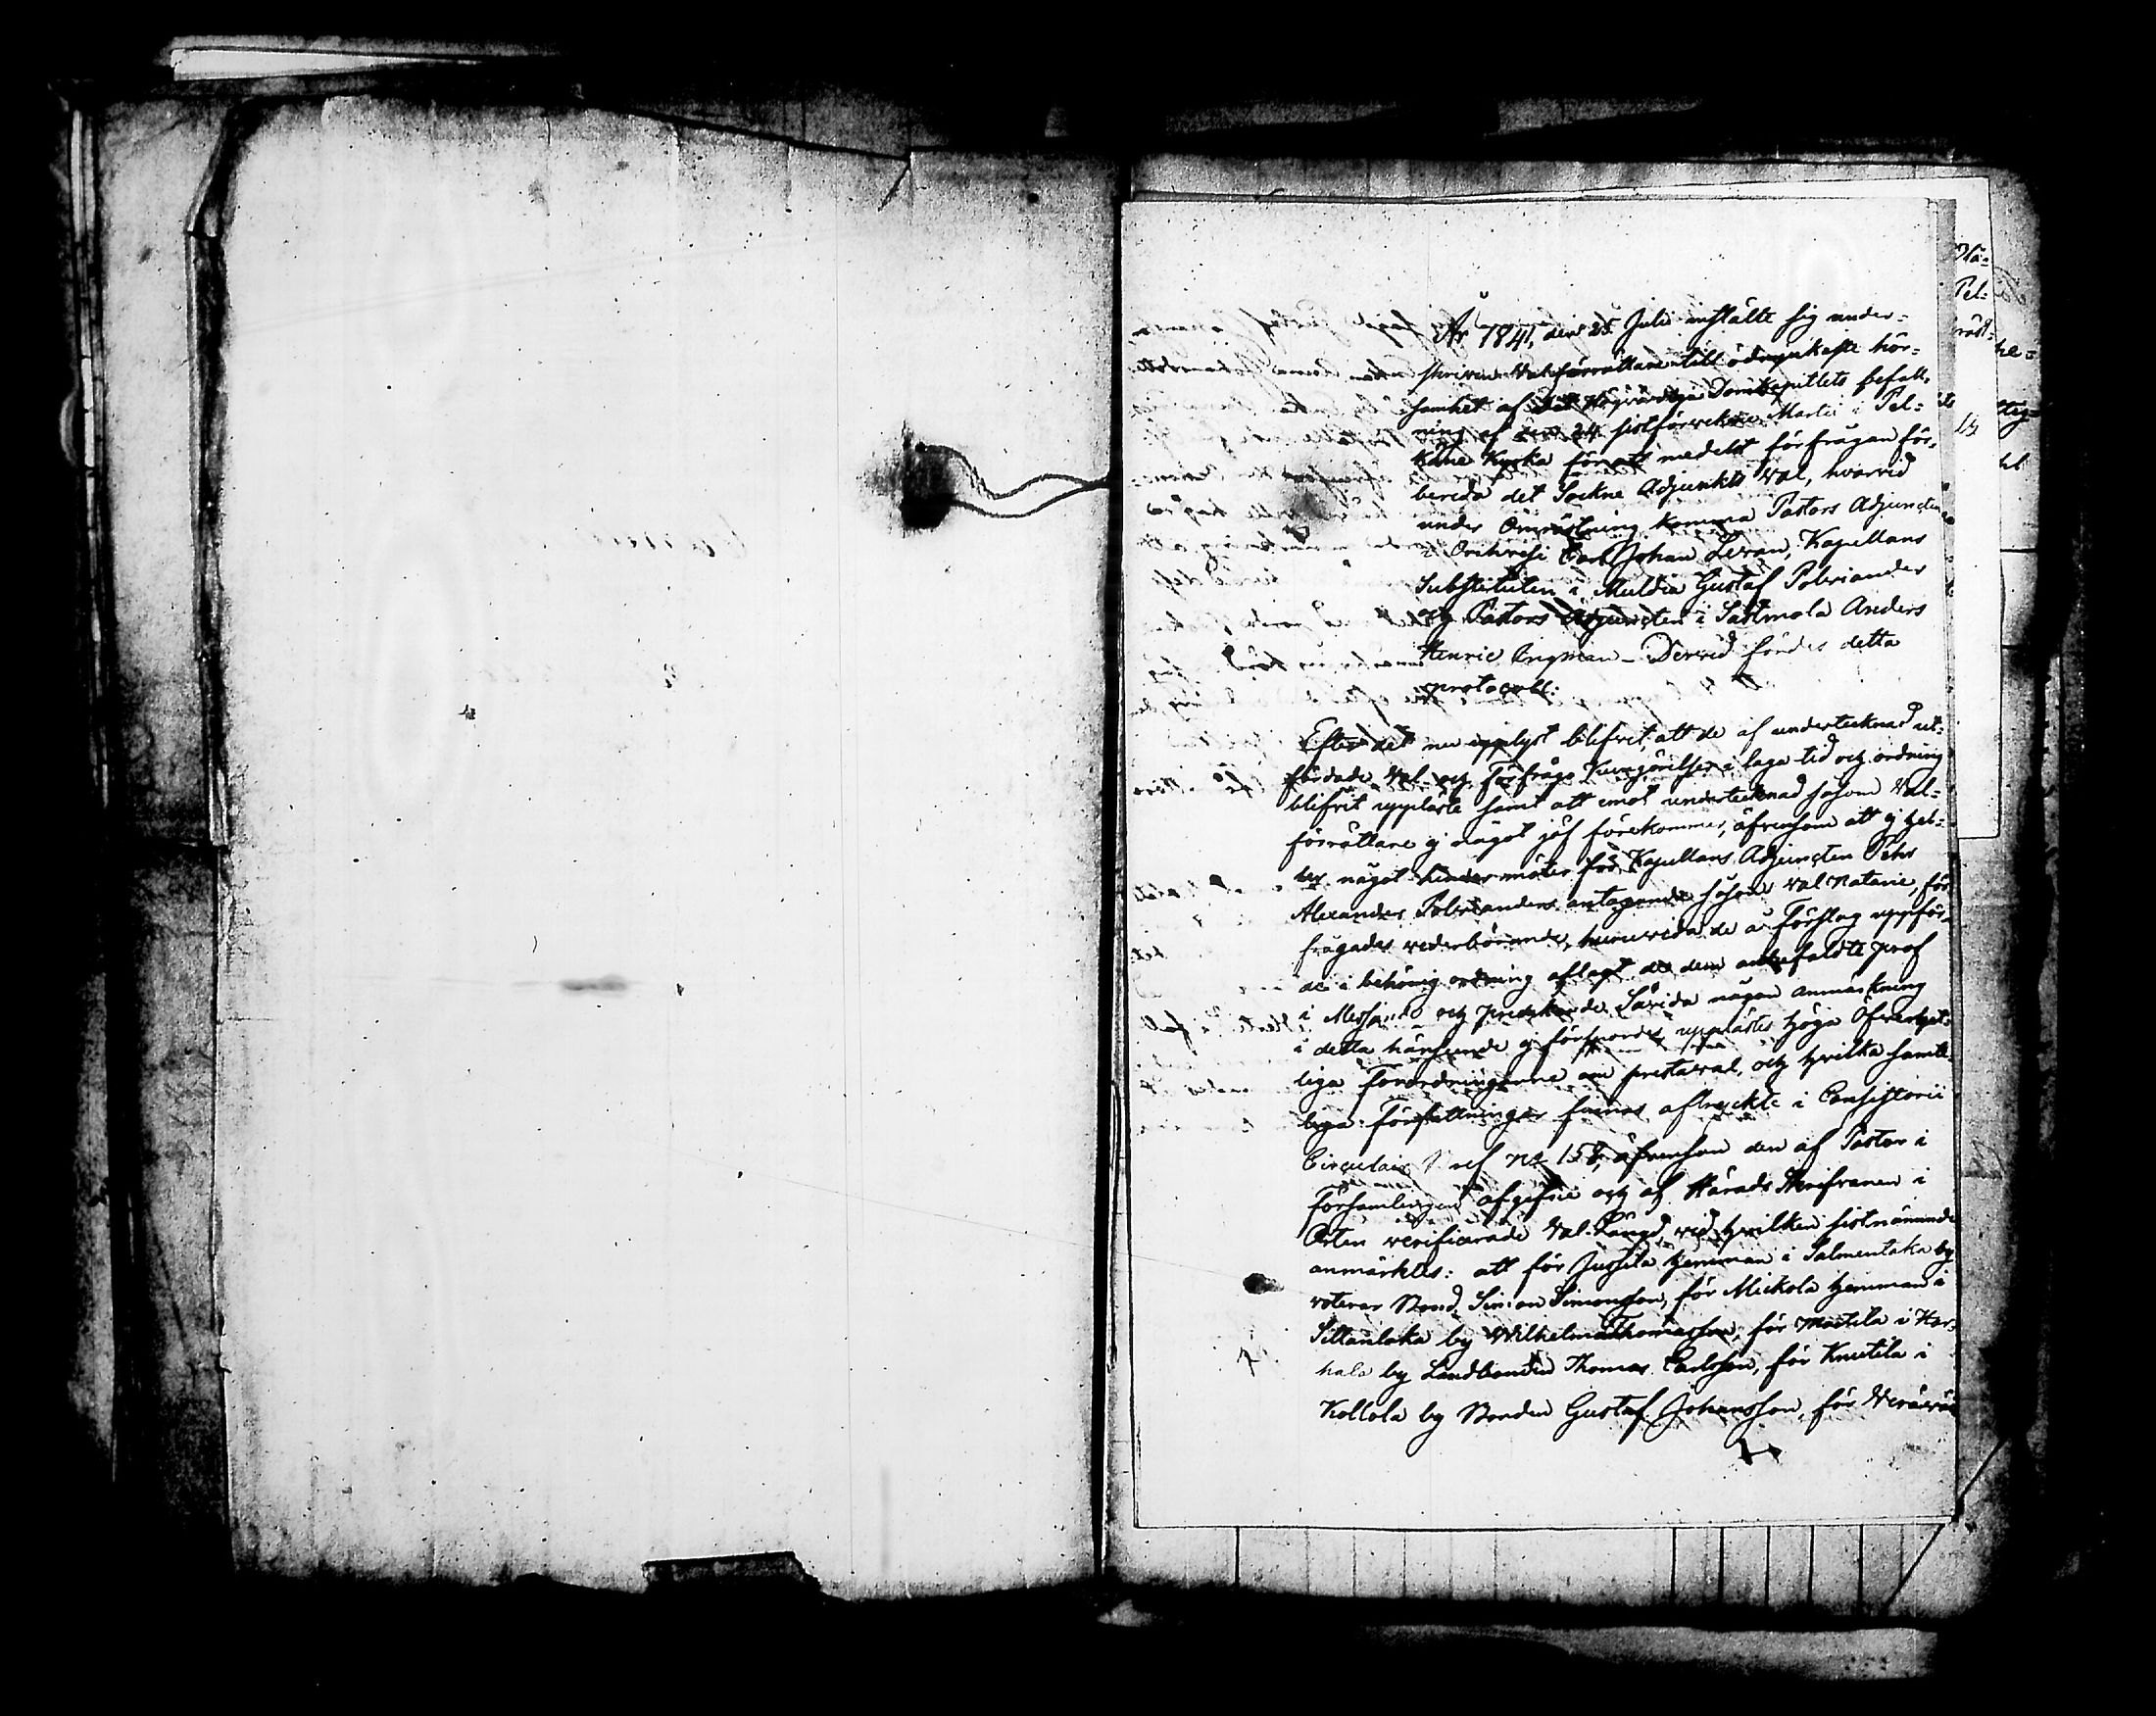 År 1841, den 25 Julii instälte sig under-
skrifven Valförrättare till ödmjukaste hör-
samhet af Det Högvördiga Domkapitlets befall-
ning af den 24 sistförvekne Martii i Pel-
käne Kyrka för att medelst förfrågan för-
bereda det Sockne Adjunkts Val, hvarvid
under Omröstning komma Pastors Adjuncten
i Orihvesi Carl Johan Levan, Kapellans
Substituten i Muldia Gustaf Polviander
och Pastors Adjuncten i Sastmola Anders
Henric Ingman – Dervid fördes detta
protocoll:
Efter det nu upplyst blifvit, att de af undertecknad ut-
färdade Val och förfrågo Kungörelser i laga tid och ordning
blifvit uppläste samt att emot undertecknad såsom Val-
förrättare ej något jäf förekommer, äfvensom att ej hel-
ler något hinder möter för Kapellans Adjuncten Pehr
Alexander Polvianders antagande såsom Val Notarie, för-
frågades vederbörande, huruvida de å Förslag uppför-
de i behörig ordning aflagt de dem anbefaldte prof
i Messande och predikande. Såvida någon anmärkning
i detta hänseende ej försports, upplästes höga Öfverhet-
liga förordningarne om prestaval, och hvilka samt-
liga Författningar finnas aftryckte i Consistorii
Circulair Bref No 158, äfvensom den af Pastor i
Församlingen afgifne och af Härads Skrifvaren i
Orten verificerade Val-Längd, vid hvilken sistnämnde
anmärktes: att för Jussila hemman i Salmentaka by
voterar Bond. Simon Simonsson, för Mickola hemman i
Sittanlaka by Wilhelm Thomasson, för Mattila i Har-
hala by Landbonden Thomas Carlsson, för Knutila i
Kollola by Bonden Gustaf Johansson, för